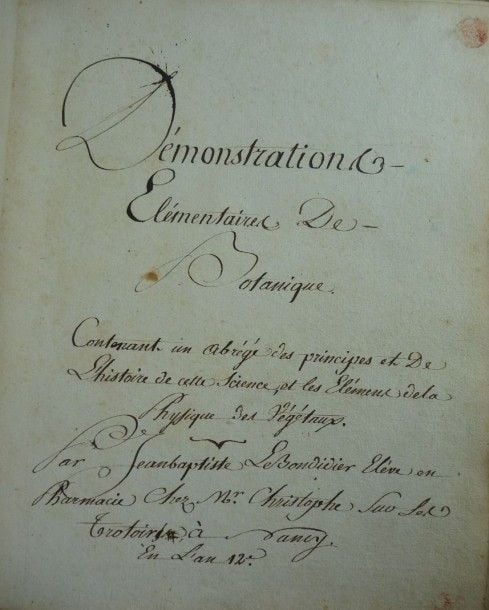 Démonstrations
Elémentaires De
Botanique.
Contenant un abrégé des principes et De
L'histoire de cette Science, et les Elémens dela
Physique des Végétaux.
Par Jeanbaptiste LeBondidier Elève en
Pharmacie Chez Mr. Christophe Sur Les
Trotoirs à Nancy
En L'an 12e